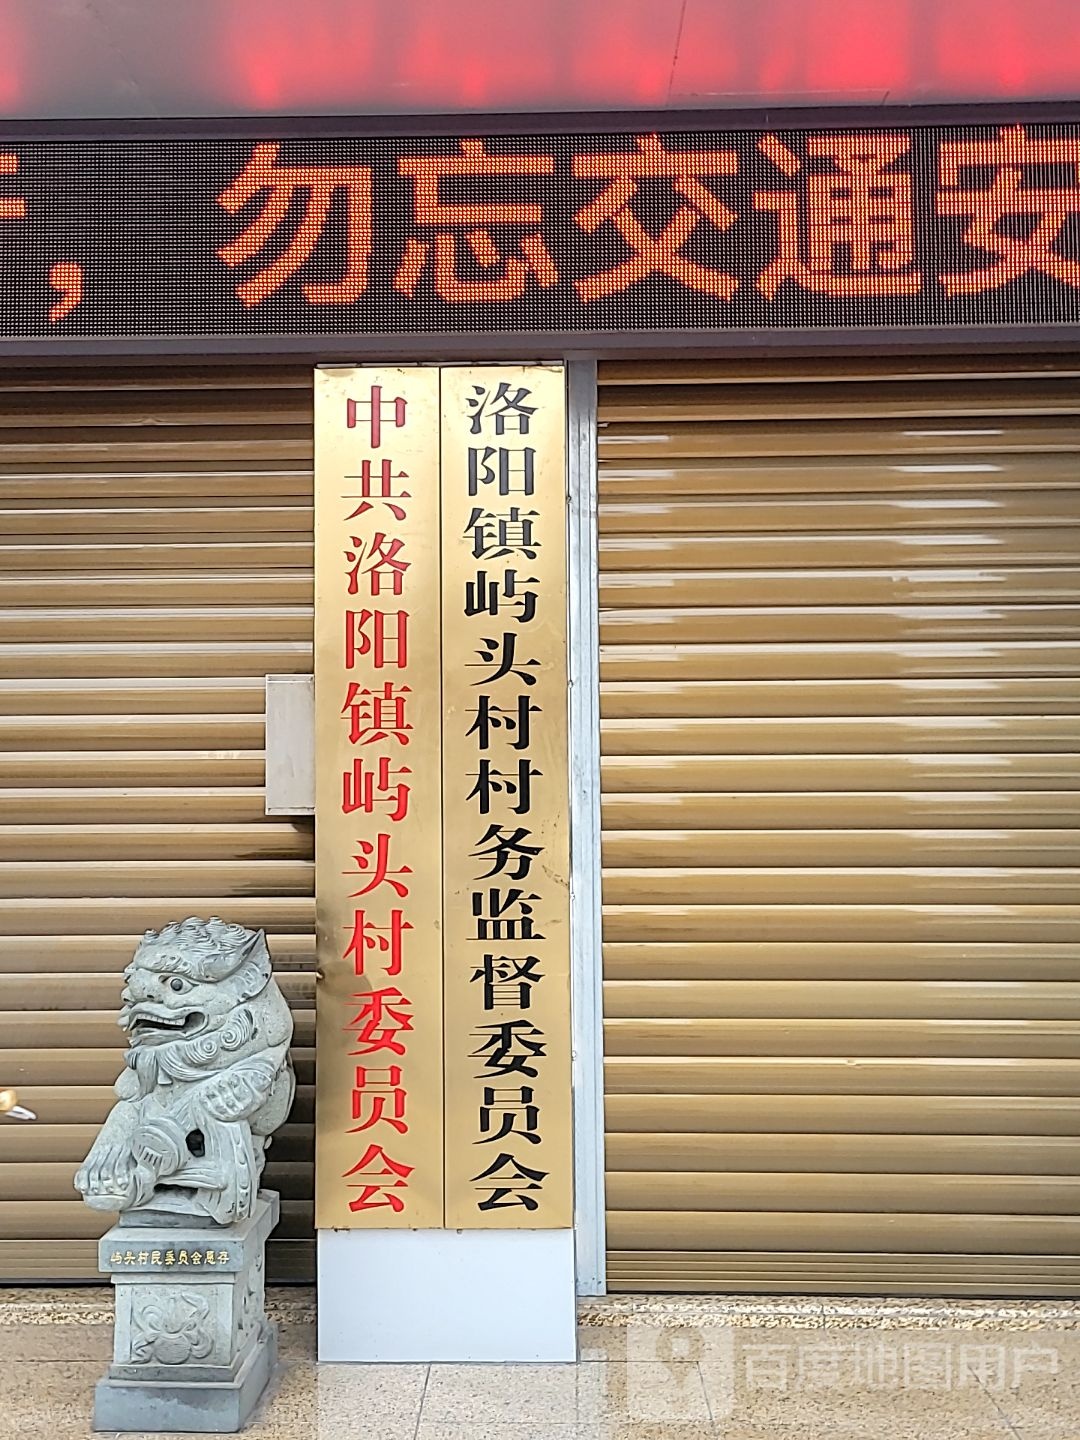 ，勿忘交通安
中共洛阳镇屿头村委员会
洛阳镇屿头村村务监督委员会
屿头村民委员会惠存
百度地图用户